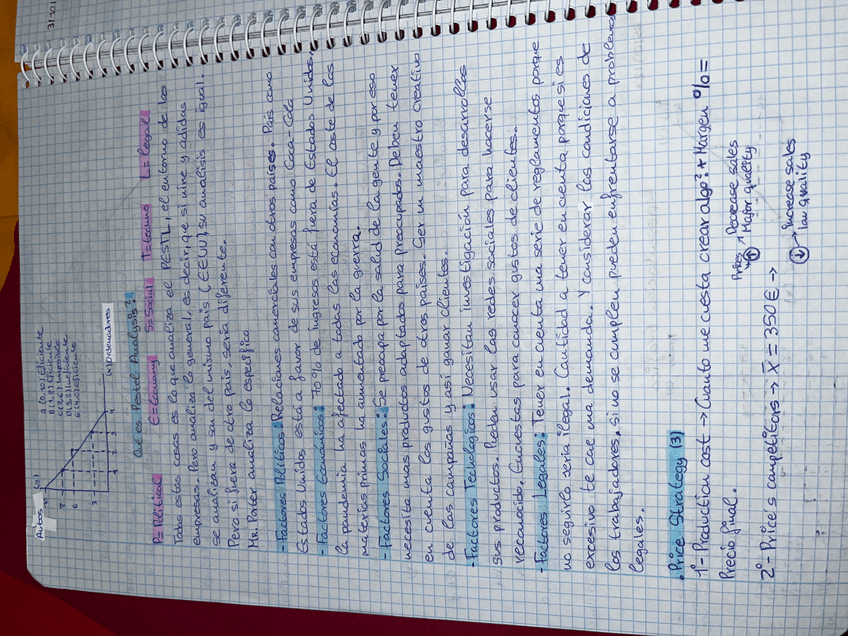 31·01
Autos (y)
A (0,10) Eficiente
B (1,8) Eficiente
C (2,6) Ineficiente
D (3,5) Ineficiente
E (4,0) Eficiente
7
6
3
1 2 3 4 (x) Ordenadores
Que es Pestel Analysis?
P=Political E=Economy S=Social T=techno L=legal
Todas estas cosas es lo que analiza el PESTL, el entorno de las
empresas. Pero analiza lo general, es decir, que si nike y adidas
se analizan y son del mismo pais (EEUU), su analisis es igual.
Pero si fuera de otro pais, seria diferente.
Mr. Poter analiza lo especifico
-Factores Politicos: Relaciones comerciales con otros paises. Pais como
Estados Unidos está a favor de sus empresas como Coca-Cola
-Factores Economicos: 70% de ingresos está fuera de Estados Unidos,
la pandemia ha afectado a todas las economias. El coste de las
materias primas ha aumentado por la gerra.
-Factores Sociales: Se preocupa por la salud de la gente y por eso
necesita mas productos adaptados para preocupados. Deben tener
en cuenta los gustos de otros paises. Ser un maestro creativo
de las campañas y asi ganar clientes.
-Factores Tecnologicos: Necesitan investigación para desarrollar
sus productos. Pueden usar las redes sociales para hacerse
reconocido. Encuestas para conocer gustos de clientes.
-Factores Legales: Tener en cuenta una serie de reglamentos porque
no seguirlo seria ilegal. Cantidad a tener en cuenta porque si es
excesivo te cae una demanda. Y considerar las condiciones de
los trabajadores, si no se cumplen pueden enfrentarse a problemas
legales.
·Price Strategy (3)
1º- Production cost → Cuanto me cuesta crear algo? + Margen % =
Precio final.
2º- Price's competitors → x̄ = 350€ →
Prices ↑ → Decrease sales
Major quality
↓ → Increase sales
low quality